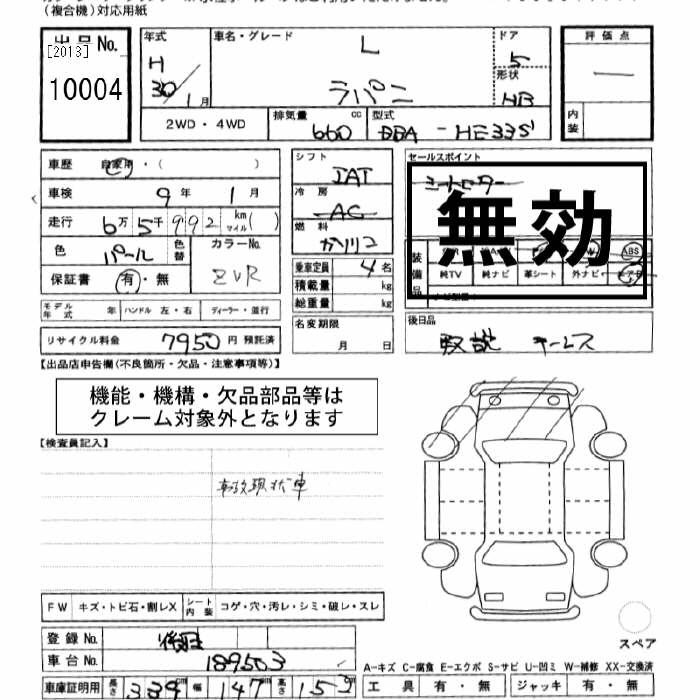 (複合機)対応用紙
出品No.
[2013]
10004
年式
H
30/1月
車名・グレード
L
ラパン
ドア
5
形状
HB
評価点
内装
2WD・4WD
排気量 660 cc
型式 DBA - HE33S
車歴 自家用・( )
車検 9年 1月
走行 6万5千992 km マイル( )
色 パール 色替
カラーNo.
ZVR
保証書 有・無
シフト IAT
冷房 AC
燃料 ガソリン
乗車定員 4名
積載量 kg
総重量 kg
セールスポイント
シートヒーター
無効
装備品
ABS
純TV 純ナビ 革シート 外ナビ エアB
モデル年式 年 ハンドル 左・右 ディーラー・並行
リサイクル料金 7950円 預託済
名変期限
月 日
後日品
取説 キーレス
【出品店申告欄(不良箇所・欠品・注意事項等)】
機能・機構・欠品部品等は
クレーム対象外となります
【検査員記入】
事故現状車
FW キズ・トビ石・割レX シート内装 コゲ・穴・汚レ・シミ・破レ・スレ
スペア
登録No. 後日
車台No. 189503
A-キズ C-腐食 E-エクボ S-サビ U-凹ミ W-補修 XX-交換済
車庫証明用 長さ 339cm 幅 147cm 高さ 152
工具 有・無 ジャッキ 有・無